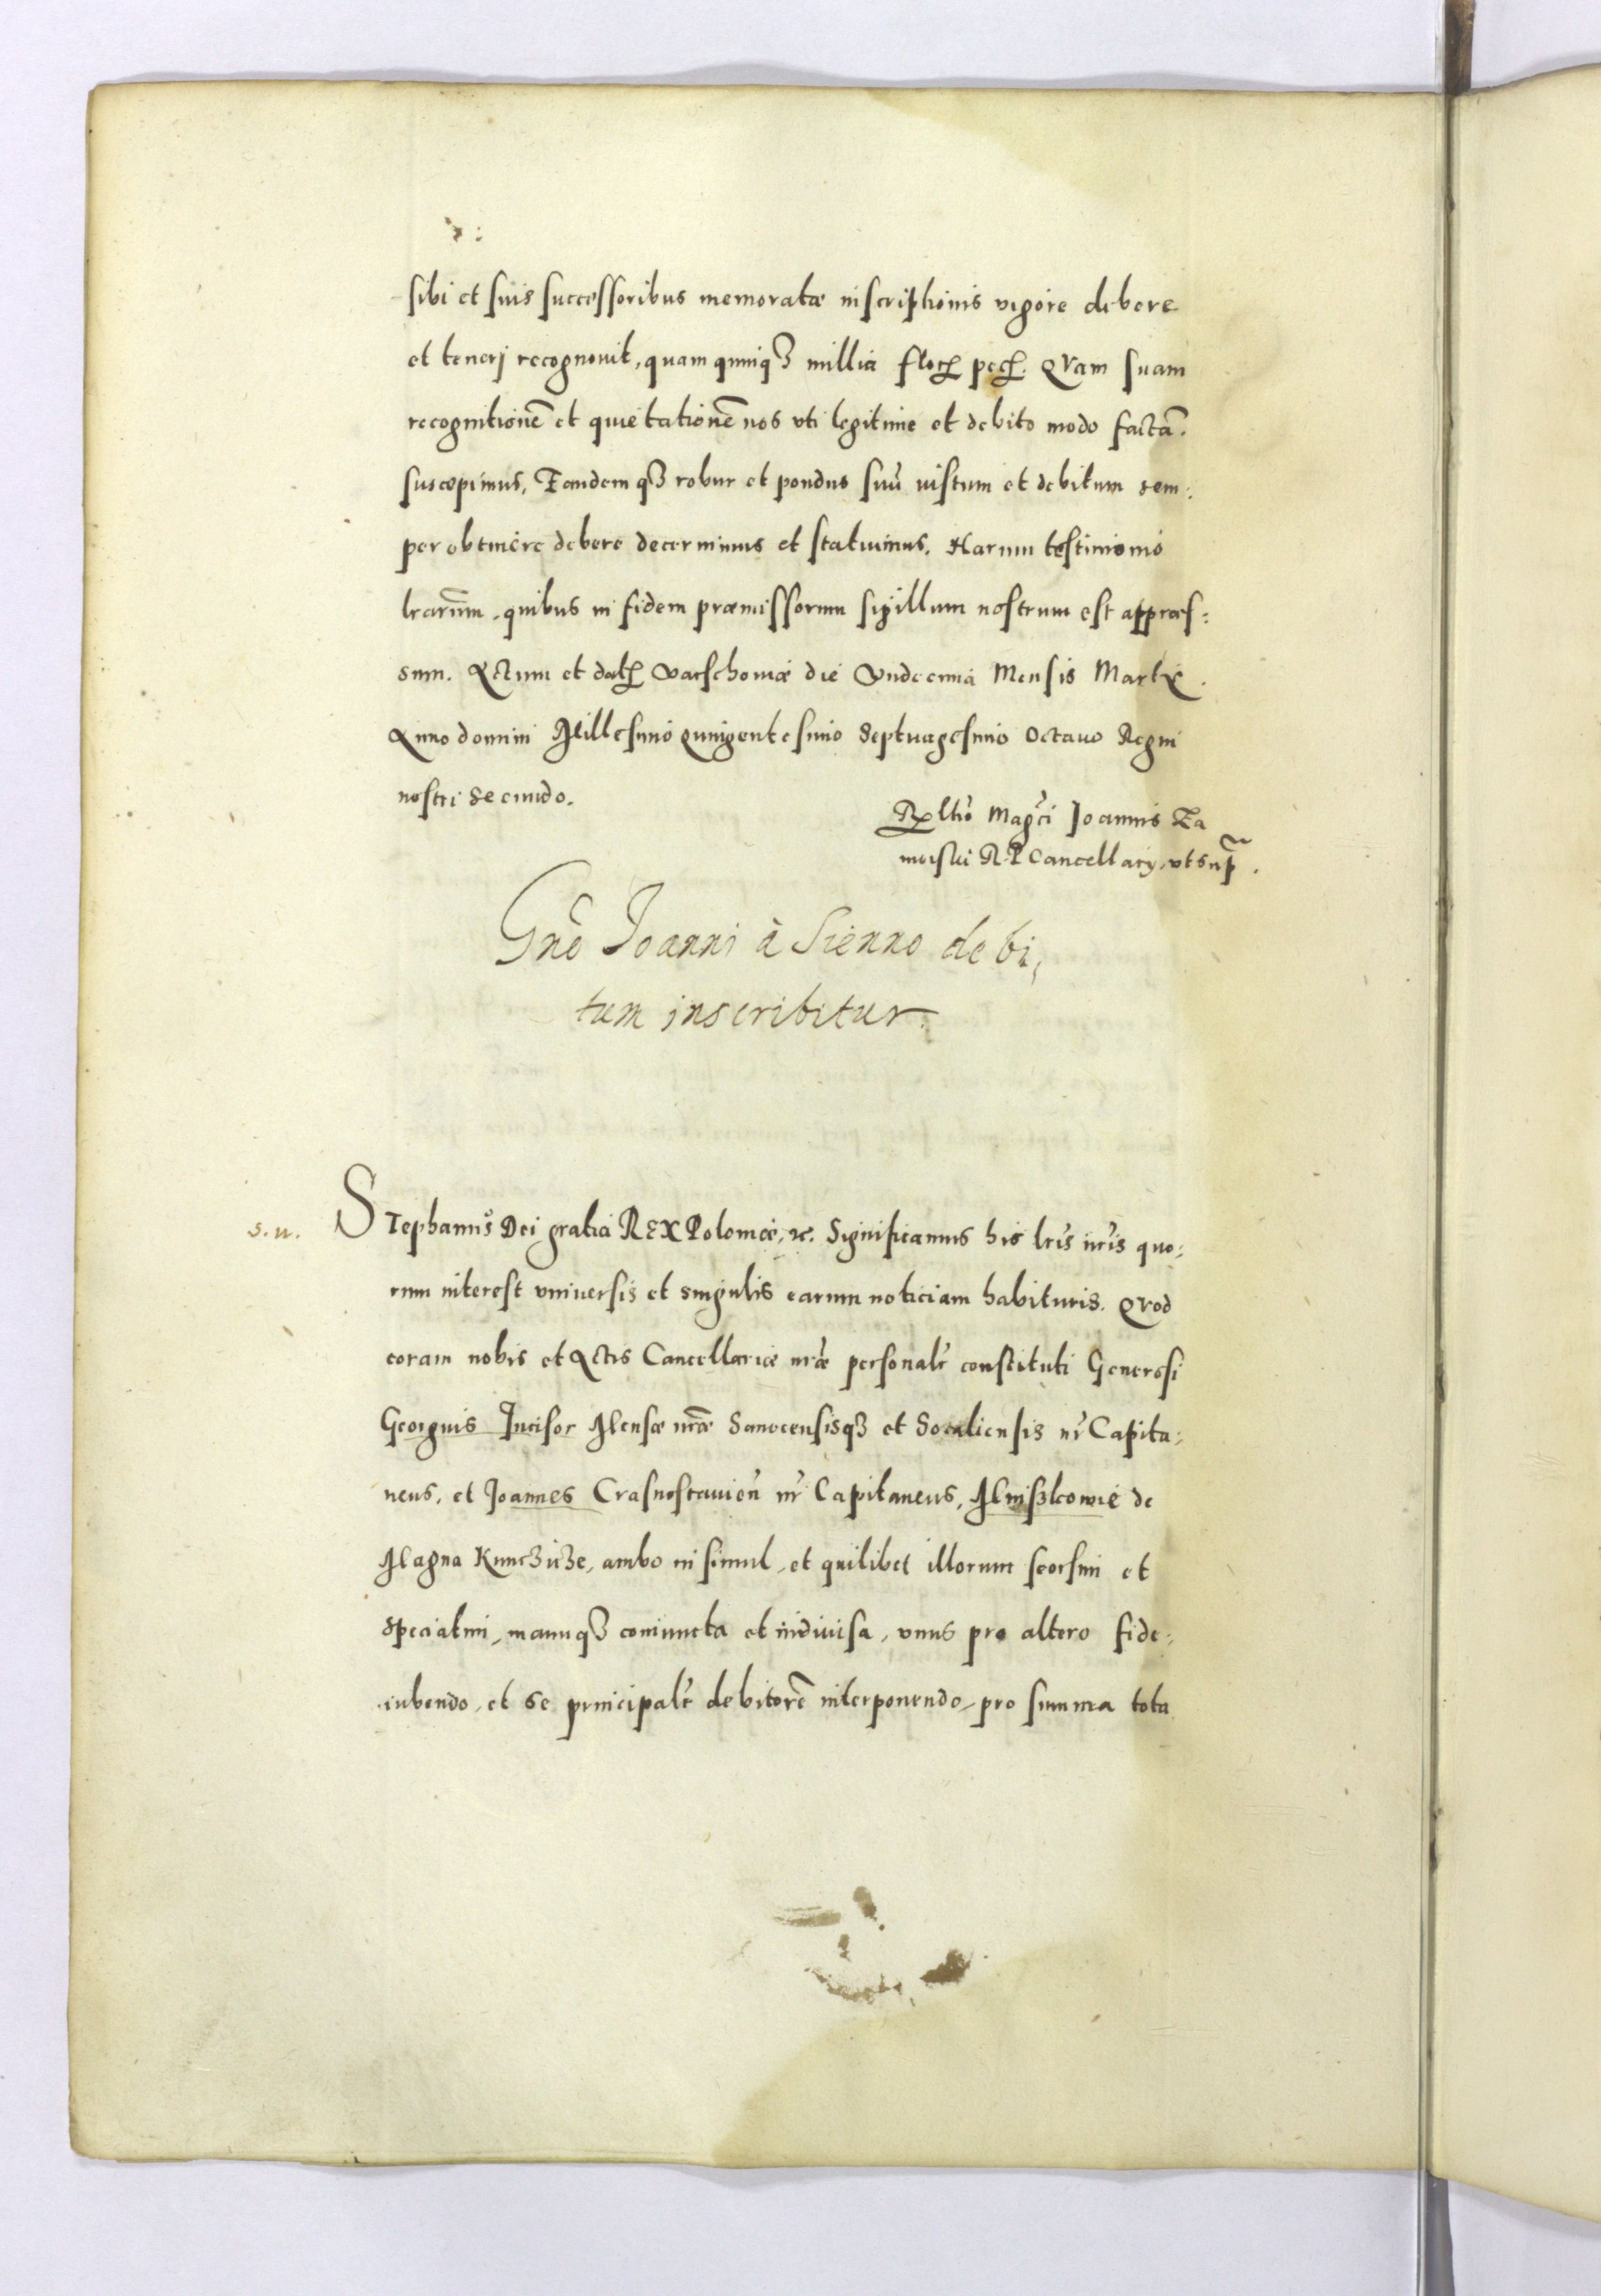 sibi et suis successoribus memoratæ inscriptionis vigore debere
et tenerj recognouit, quam quinqꝫ millia floꝝ pecꝝ. QVam suam
recognitionē et quietationē nos vti legitime et debito modo factā.
suscepimus, Eandemqꝫ robur et pondus suū iustum et debitum sem:
per obtinere debere decernimus et statuimus. Harum testimonio
lrarum̄, quibus in fidem præmissorum sigillum nostrum est appræs:
sum. Actum et datꝝ Varschouiæ die Vndecima Mensis Martij.
Anno domini Millesimo quingentesimo Septuagesimo Octauo Regni
nostri Secundo.
Rltio Magci Joannis Za
moiski R. P. Cancellarij, vt sup̄.
Gnō Joanni à Sienno debi,
tum inscribitur.
s. n.
STephanus Dei gratia REX Poloniæ, ꝛc. Significamus his lris nris quo:
rum interest vniuersis et singulis earum noticiam habituris. QVod
coram nobis et Actis Cancellariæ nræ personalr constituti Generosi
Georgius Incisor Mensæ nræ Sanocensisqꝫ et Socaliensis nr Capita:
neus, et Joannes Crasnostauien̄ nr Capitaneus, Mniszkowie de
Magna Kunczicze, ambo in simul, et quilibet illorum seorsim et
speciatim, manuqꝫ coniuncta et indiuisa, vnus pro altero fide:
iubendo, et se principalr debitorē interponendo, pro summa tota